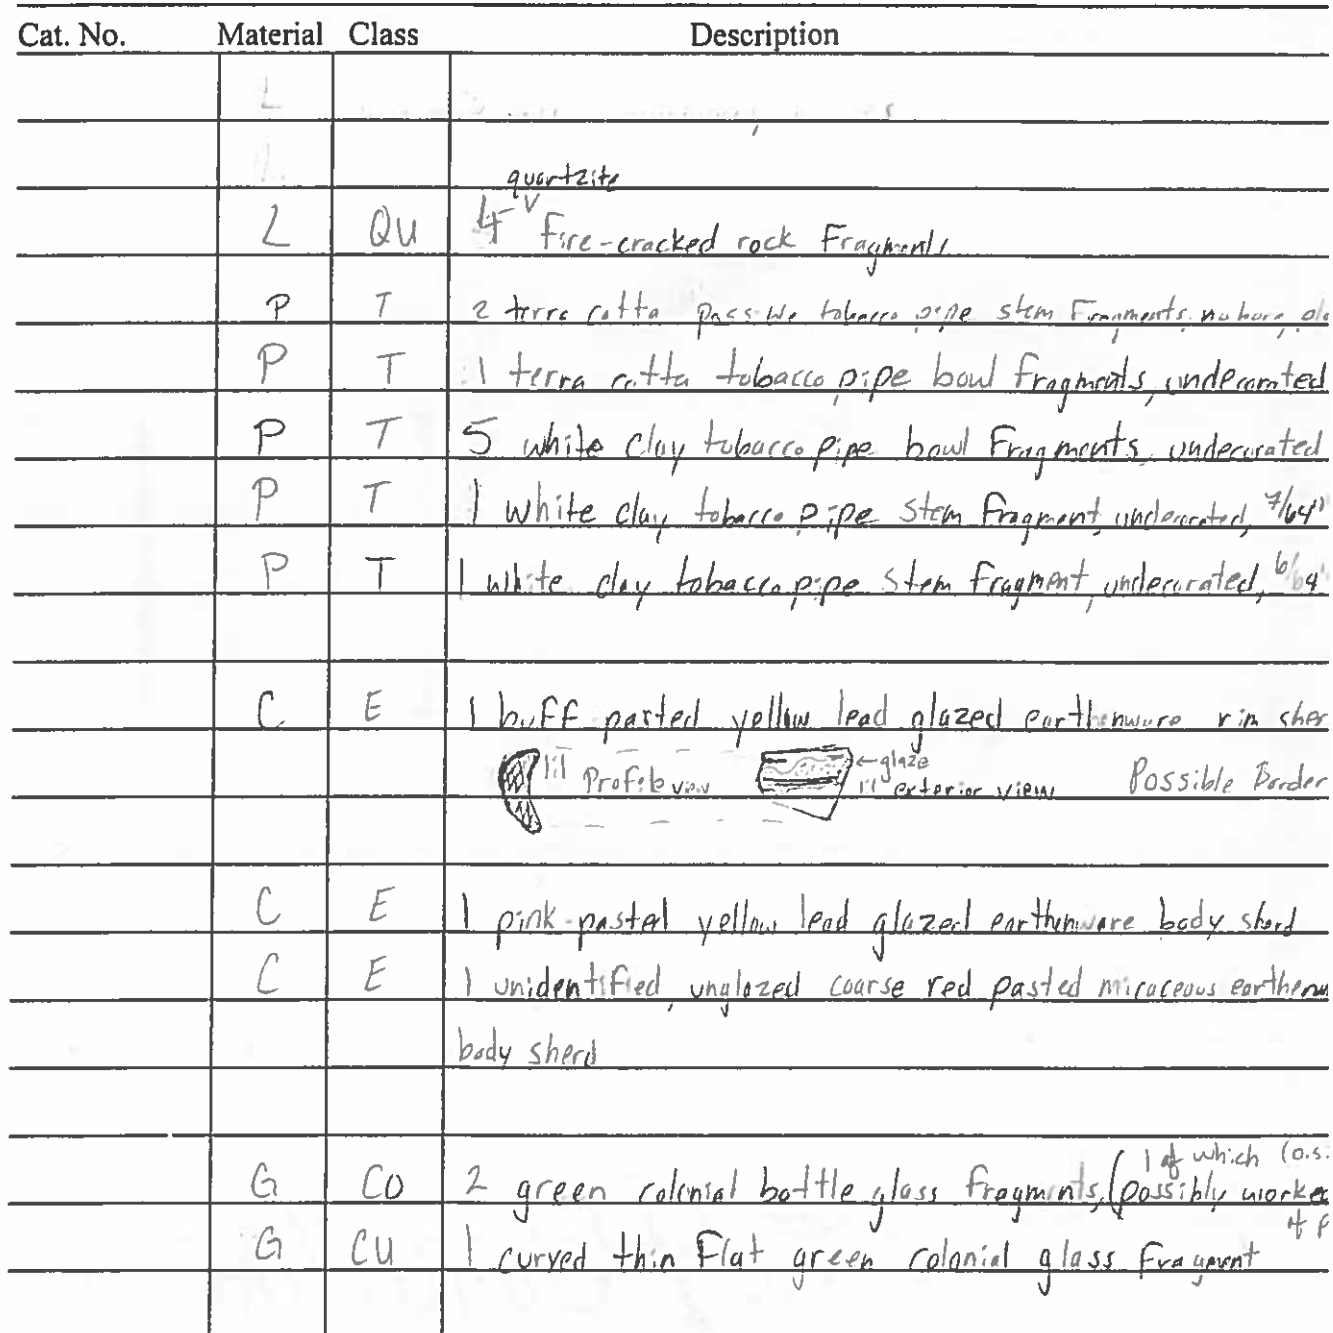 Cat. No. Material Class Description
L
L
quartzite
L QU 4 V fire-cracked rock Fragments
P T 2 terra cotta tobacco pipe stem Fragments, no bore,
P T 1 terra cotta tobacco pipe bowl fragments, undecorated
P T 5 white clay tobacco pipe bowl Fragments, undecorated
P T 1 white clay tobacco pipe stem fragment, undecorated, 7/64"
P T 1 white clay tobacco pipe stem fragment, undecorated, 6/64"
C E 1 buff pasted yellow lead glazed earthenware rim sher
1:1 Profile view ←glaze
1:1 exterior view Possible Border
C E 1 pink-pasted yellow lead glazed earthenware body sherd
C E 1 unidentified, unglazed coarse red pasted micaceous earthenw
body sherd
1 of which (o.s.
G CO 2 green colonial bottle glass fragments, (possibly worked
G CU 1 curved thin Flat green colonial glass fragment